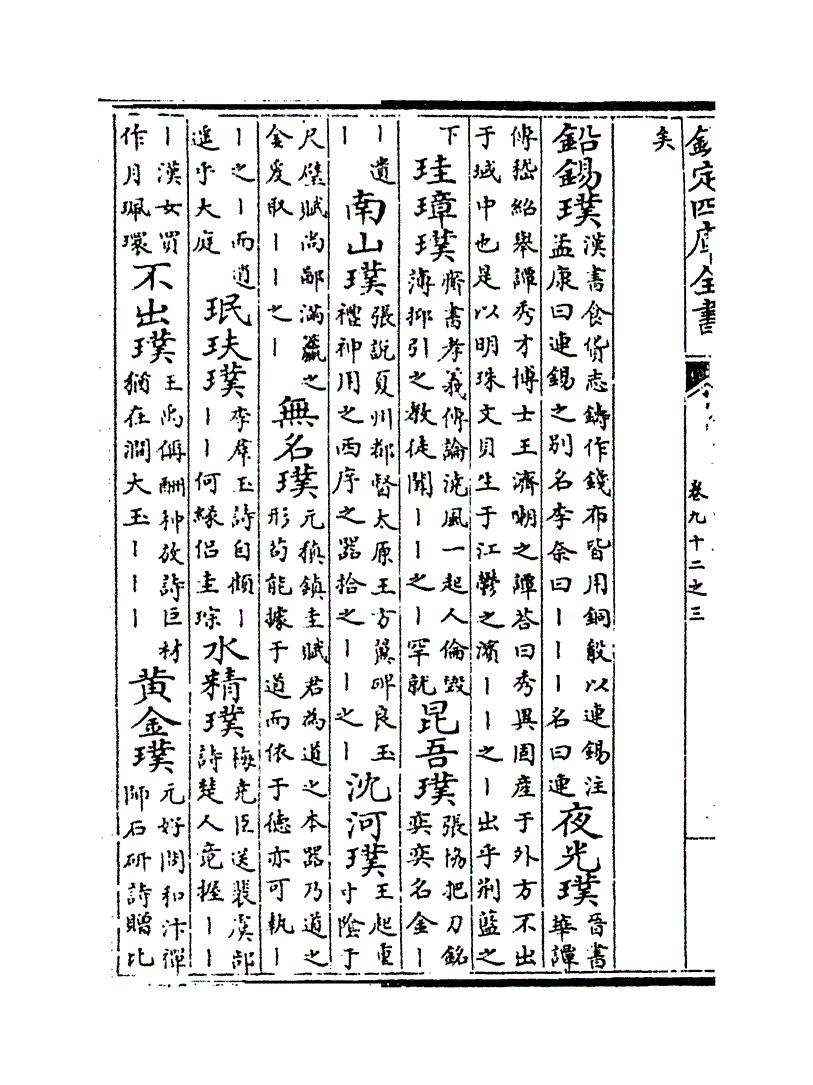 欽定四庫全書
卷九十二之三
矣
鉛錫璞
漢書食貨志鑄作錢布皆用銅殽以連錫注
孟康曰連錫之別名李奈曰丨丨丨名曰連
夜光璞
晉書
華譚
傳嵇紹舉譚秀才博士王濟嘲之譚答曰秀異固産于外方不出
于域中也是以明珠文貝生于江鬱之濱丨丨之丨出乎荆藍之
下
珪璋璞
齊書孝義傳論澆風一起人倫毀
薄抑引之教徒聞丨丨之丨罕就
昆吾璞
張協把刀銘
奕奕名金丨
丨遺
丨
南山璞
張說夏州都督太原王方翼碑良玉
禮神用之西序之器拾之丨丨之丨
沈河璞
王起重
寸陰于
尺璧賦尚鄙滿籯之
金爰取丨丨之丨
無名璞
元稹鎮圭賦君為道之本器乃道之
形苟能據于道而依于德亦可執丨
丨之丨而道
進乎大庭
珉玞璞
李羣玉詩自慚丨
丨丨何緣侶圭琮
水精璞
梅堯臣送裴虞部
詩楚人竟握丨丨
丨漢女買
作月珮環
不出璞
王禹偁酬种放詩巨材
猶在澗大玉丨丨丨
黃金璞
元好問和汴禪
師石研詩贈比